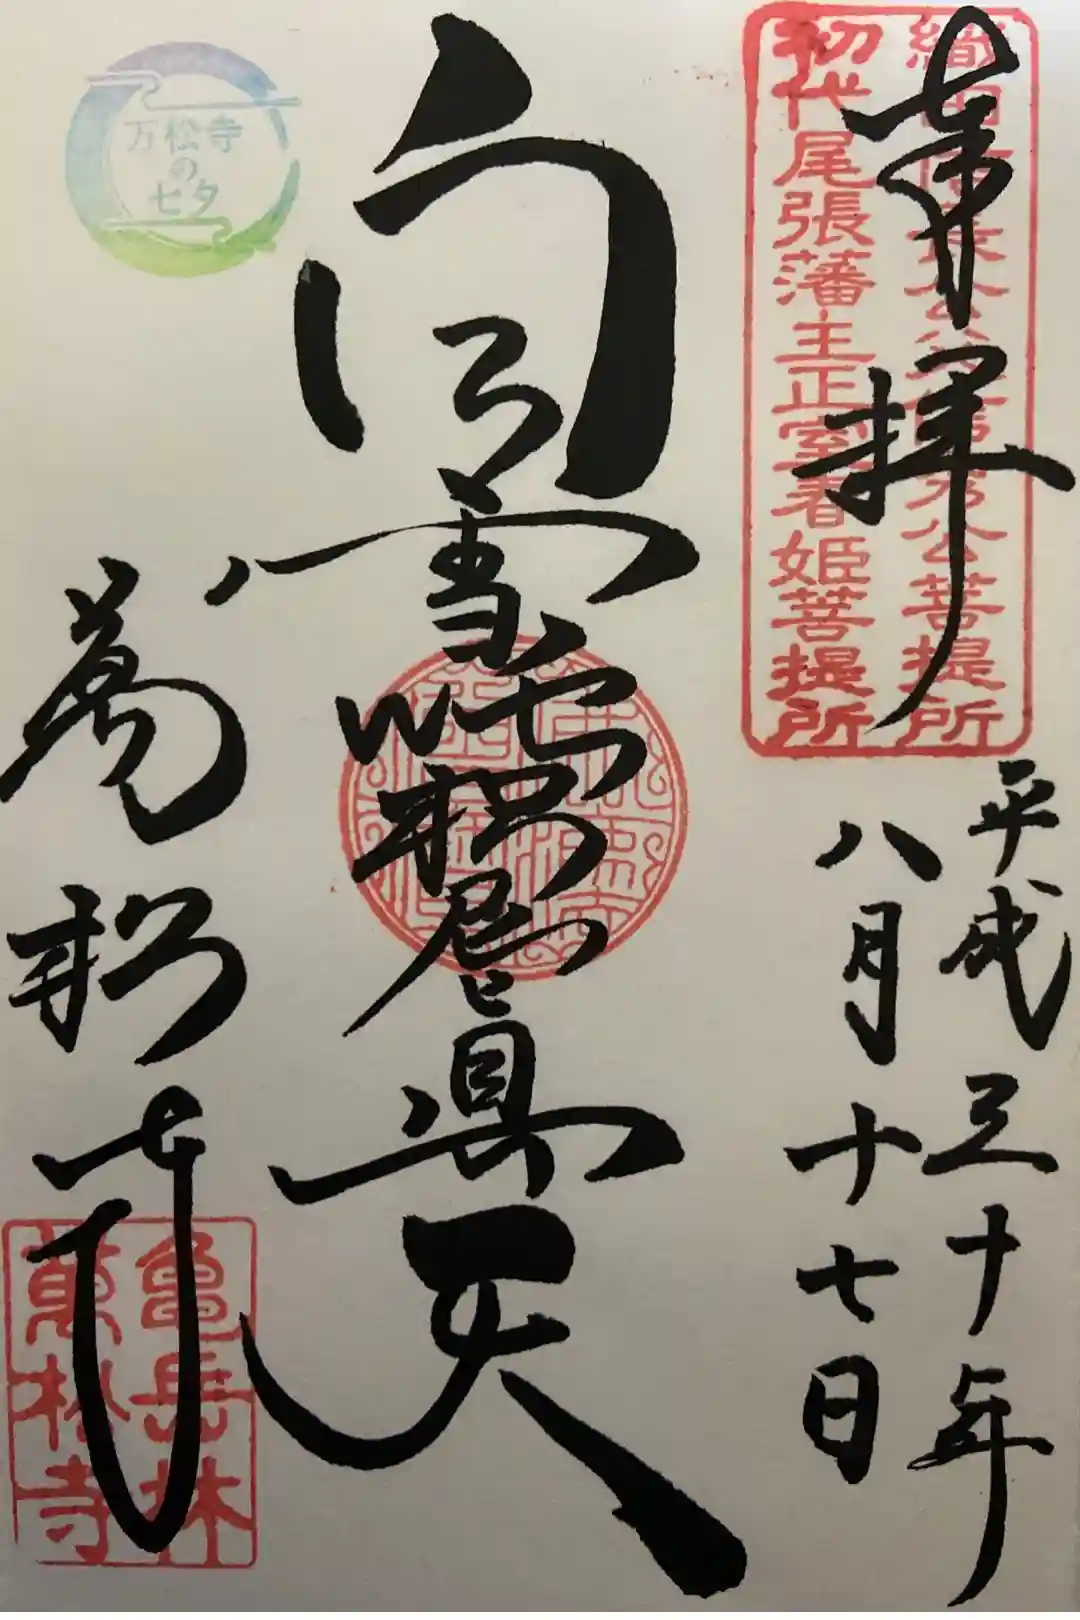 奉拝
織田信長公父信秀公菩提所
初代尾張藩主正室春姫菩提所
平成三十年
八月十七日
白雪吒枳尼真天
万松寺
の
七夕
萬松寺
亀岳林
萬松寺